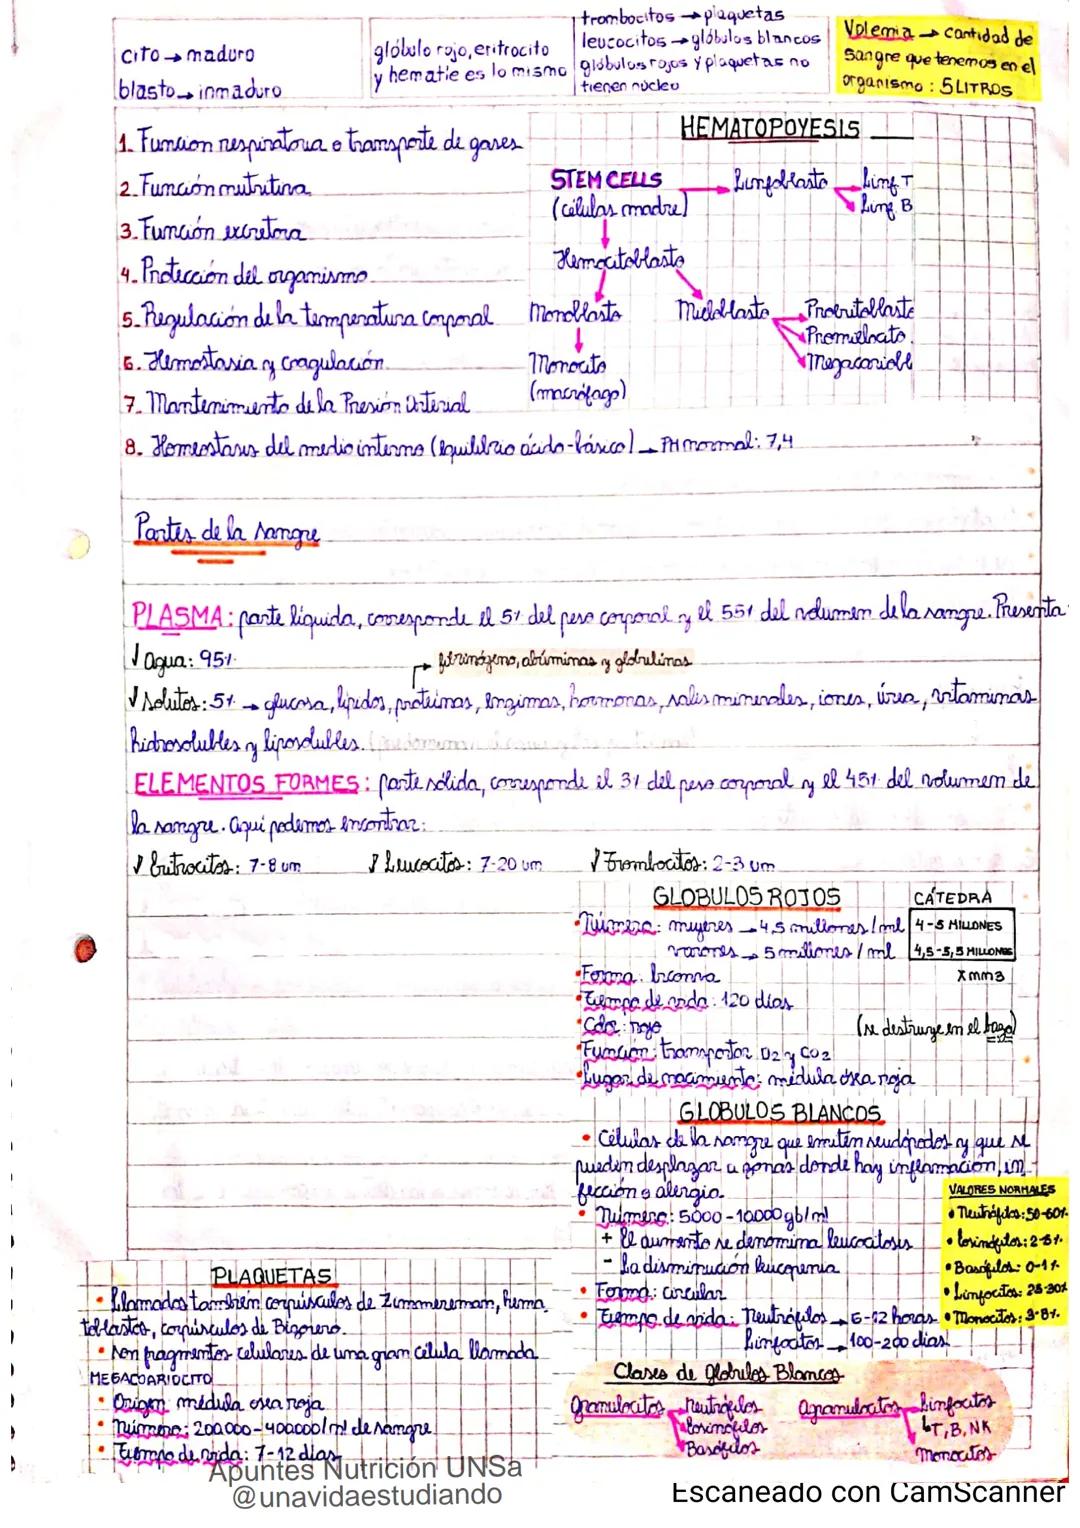 cito → maduro
blasto → inmaduro
glóbulo rojo, eritrocito
y hematie es lo mismo
trombocitos → plaquetas
leucocitos → glóbulos blancos
glóbulos rojos y plaquetas no
tienen núcleo
Volemia → cantidad de
sangre que tenemos en el
organismo : 5 LITROS
1. Funcion respiratoria o transporte de gases
2. Función nutritiva
3. Función excretora
4. Protección del organismo
5. Regulación de la temperatura corporal
6. Hemostasia y coagulación
7. Mantenimiento de la Presión Arterial
8. Homeostasis del medio interno (equilibrio ácido-básico) → PH normal: 7,4
HEMATOPOYESIS
STEM CELLS → Linfoblasto → Linf T
(células madre) Linf B
Hemocitoblasto
Monoblasto Mieloblasto → Proeritoblasto
Promielocito
Monocito Megacariobl
(macrófago)
Partes de la sangre
PLASMA: parte líquida, corresponde el 5% del peso corporal y el 55% del volumen de la sangre. Presenta
✓ Agua: 95%
fibrinógeno, albúminas y globulinas
✓ Solutos: 5% → glucosa, lípidos, proteínas, enzimas, hormonas, sales minerales, iones, úrea, vitaminas
hidrosolubles y liposolubles.
ELEMENTOS FORMES: parte sólida, corresponde el 3% del peso corporal y el 45% del volumen de
la sangre. Aqui podemos encontrar:
✓ Eritrocitos: 7-8 um ✓ Leucocitos: 7-20 um ✓ Trombocitos: 2-3 um
GLOBULOS ROJOS
CÁTEDRA
• Número: mujeres → 4,5 millones/ml
4-5 MILLONES
varones → 5 millones/ml
4,5-5,5 MILLONES
X mm3
• Forma: bicónva
• Tiempo de vida: 120 días
• Color: rojo
(se destruye en el bazo)
• Función: transportar O2 y CO2
• Lugar de nacimiento: médula ósea roja
GLOBULOS BLANCOS
• Células de la sangre que emiten seudópodos y que se
pueden desplazar a zonas donde hay inflamacion, in-
fección o alergia.
• Número: 5000-10000 gb/ml
+ El aumento se denomina leucocitosis
- La disminución leucopenia
• Forma: circular
• Tiempo de vida: Neutrófilos → 6-12 horas
Linfocitos → 100-200 días
VALORES NORMALES
• Neutrófilos: 50-60%
• Eosinófilos: 2-5%
• Basófilos: 0-1%
• Linfocitos: 25-30%
• Monocitos: 3-8%
Clases de Glóbulos Blancos
Granulocitos → Neutrófilos
Eosinófilos
Basófilos
Agranulocitos → Linfocitos
↳ T, B, NK
Monocitos
PLAQUETAS
• Llamados también corpúsculos de Zimmereman, hema
toblastos, corpúsculos de Bizorero.
• Son fragmentos celulares de una gran célula llamada
MEGACOARIOCITO
• Origen médula osea roja
• Número: 200.000-400000/ml de sangre
• Tiempo de vida: 7-12 días
Apuntes Nutrición UNSa
@unavidaestudiando
Escaneado con CamScanner